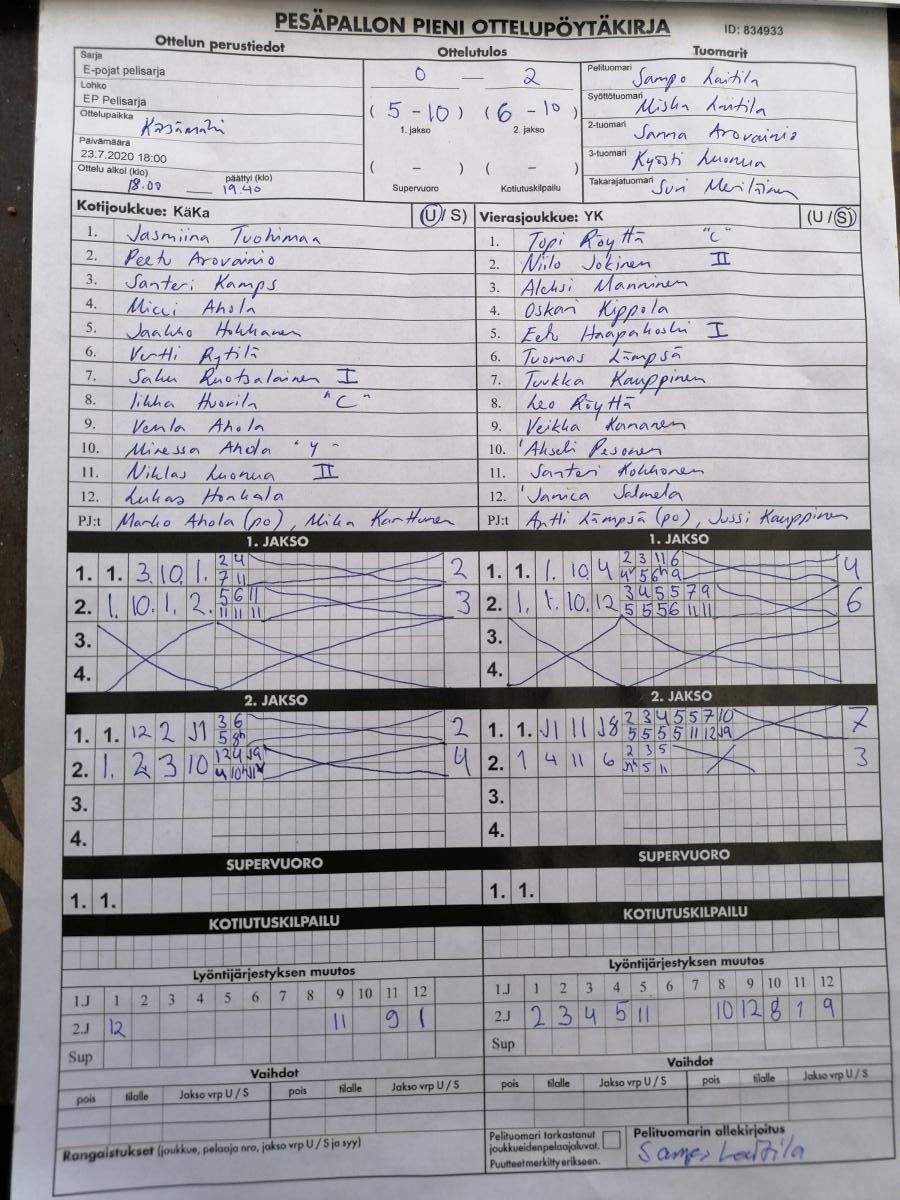 PESÄPALLON PIENI OTTELUPÖYTÄKIRJA ID: 834933
Ottelun perustiedot
Sarja
E-pojat pelisarja
Lohko
EP Pelisarja
Ottelupaikka Kärsämäki
Päivämäärä
23.7.2020 18:00
Ottelu alkoi (klo) päättyi (klo)
18.00 — 19.40
Ottelutulos
0 — 2
( 5 - 10 ) ( 6 - 10 )
1. jakso 2. jakso
( - ) ( - )
Supervuoro Kotiutuskilpailu
Tuomarit
Pelituomari Sampo Laitila
Syöttötuomari Miska Laitila
2-tuomari Sanna Arovainio
3-tuomari Kyösti Luonua
Takarajatuomari Suvi Meriläinen
Kotijoukkue: KäKa (U / S)
1. Jasmiina Tuohimaa
2. Peetu Arovainio
3. Santeri Kamps
4. Micci Ahola
5. Jaakko Hokkanen
6. Vertti Rytilä
7. Saku Ruotsalainen I
8. Iikka Huovila "C"
9. Venla Ahola
10. Minessa Ahola "Y"
11. Niklas Luonua II
12. Lukas Honkala
PJ:t Marko Ahola (po), Mika Karttunen
Vierasjoukkue: YK (U / S)
1. Topi Röyttä "C"
2. Niilo Jokinen II
3. Aleksi Manninen
4. Oskari Kippola
5. Eetu Haapakoski I
6. Tuomas Lämpsä
7. Tuukka Kauppinen
8. Leo Röyttä
9. Veikka Kananen
10. Akseli Pesonen
11. Santeri Kokkonen
12. Janica Salmela
PJ:t Antti Lämpsä (po), Jussi Kauppinen
1. JAKSO
1. 1. 3. 10. 1. 2 4 2
7 11
2. 1. 10. 1. 2. 5 6 11 3
11 11 11
3.
4.
1. JAKSO
1. 1. 1. 10. 4 2 3 11 6 4
2. 1. 1. 10. 12 3 4 5 5 7 9 6
5 5 5 6 11 11
3.
4.
2. JAKSO
1. 1. 12 2 J1 3 6 2
2. 1. 2 3 10 4
3.
4.
2. JAKSO
1. 1. J1 11 J8 2 3 4 5 5 7 10 7
5 5 5 5 11 12 J9
2. 1 4 11 6 2 3 5 3
5 11
3.
4.
SUPERVUORO
1. 1.
SUPERVUORO
1. 1.
KOTIUTUSKILPAILU
KOTIUTUSKILPAILU
Lyöntijärjestyksen muutos
1.J 1 2 3 4 5 6 7 8 9 10 11 12
2.J 12 11 9 1
Sup
Lyöntijärjestyksen muutos
1.J 1 2 3 4 5 6 7 8 9 10 11 12
2.J 2 3 4 5 11 10 12 8 1 9
Sup
Vaihdot
pois tilalle Jakso vrp U / S pois tilalle Jakso vrp U / S
Vaihdot
pois tilalle Jakso vrp U / S pois tilalle Jakso vrp U / S
Rangaistukset (joukkue, pelaaja nro, jakso vrp U / S ja syy)
Pelituomari tarkastanut
joukkueiden pelaajaluvat.
Puutteet merkitty erikseen.
Pelituomarin allekirjoitus
Sampo Laitila